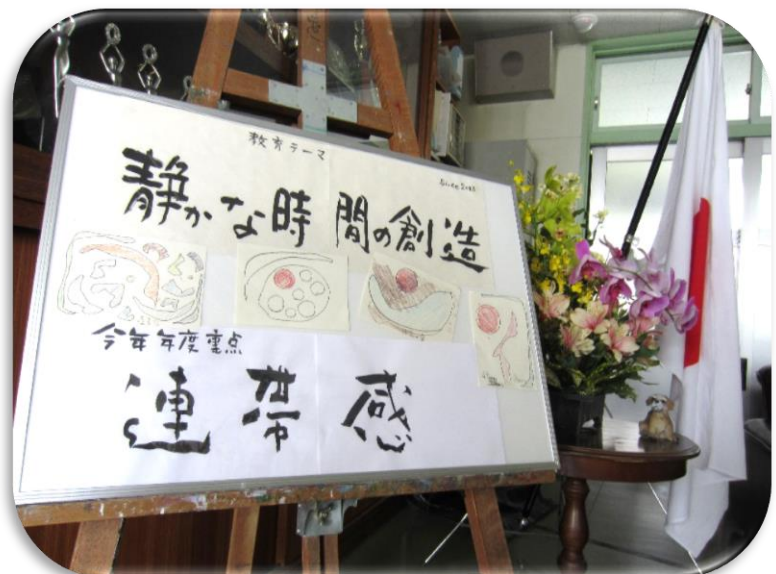 教育テーマ
静かな時間の創造
今年年度重点
連帯感